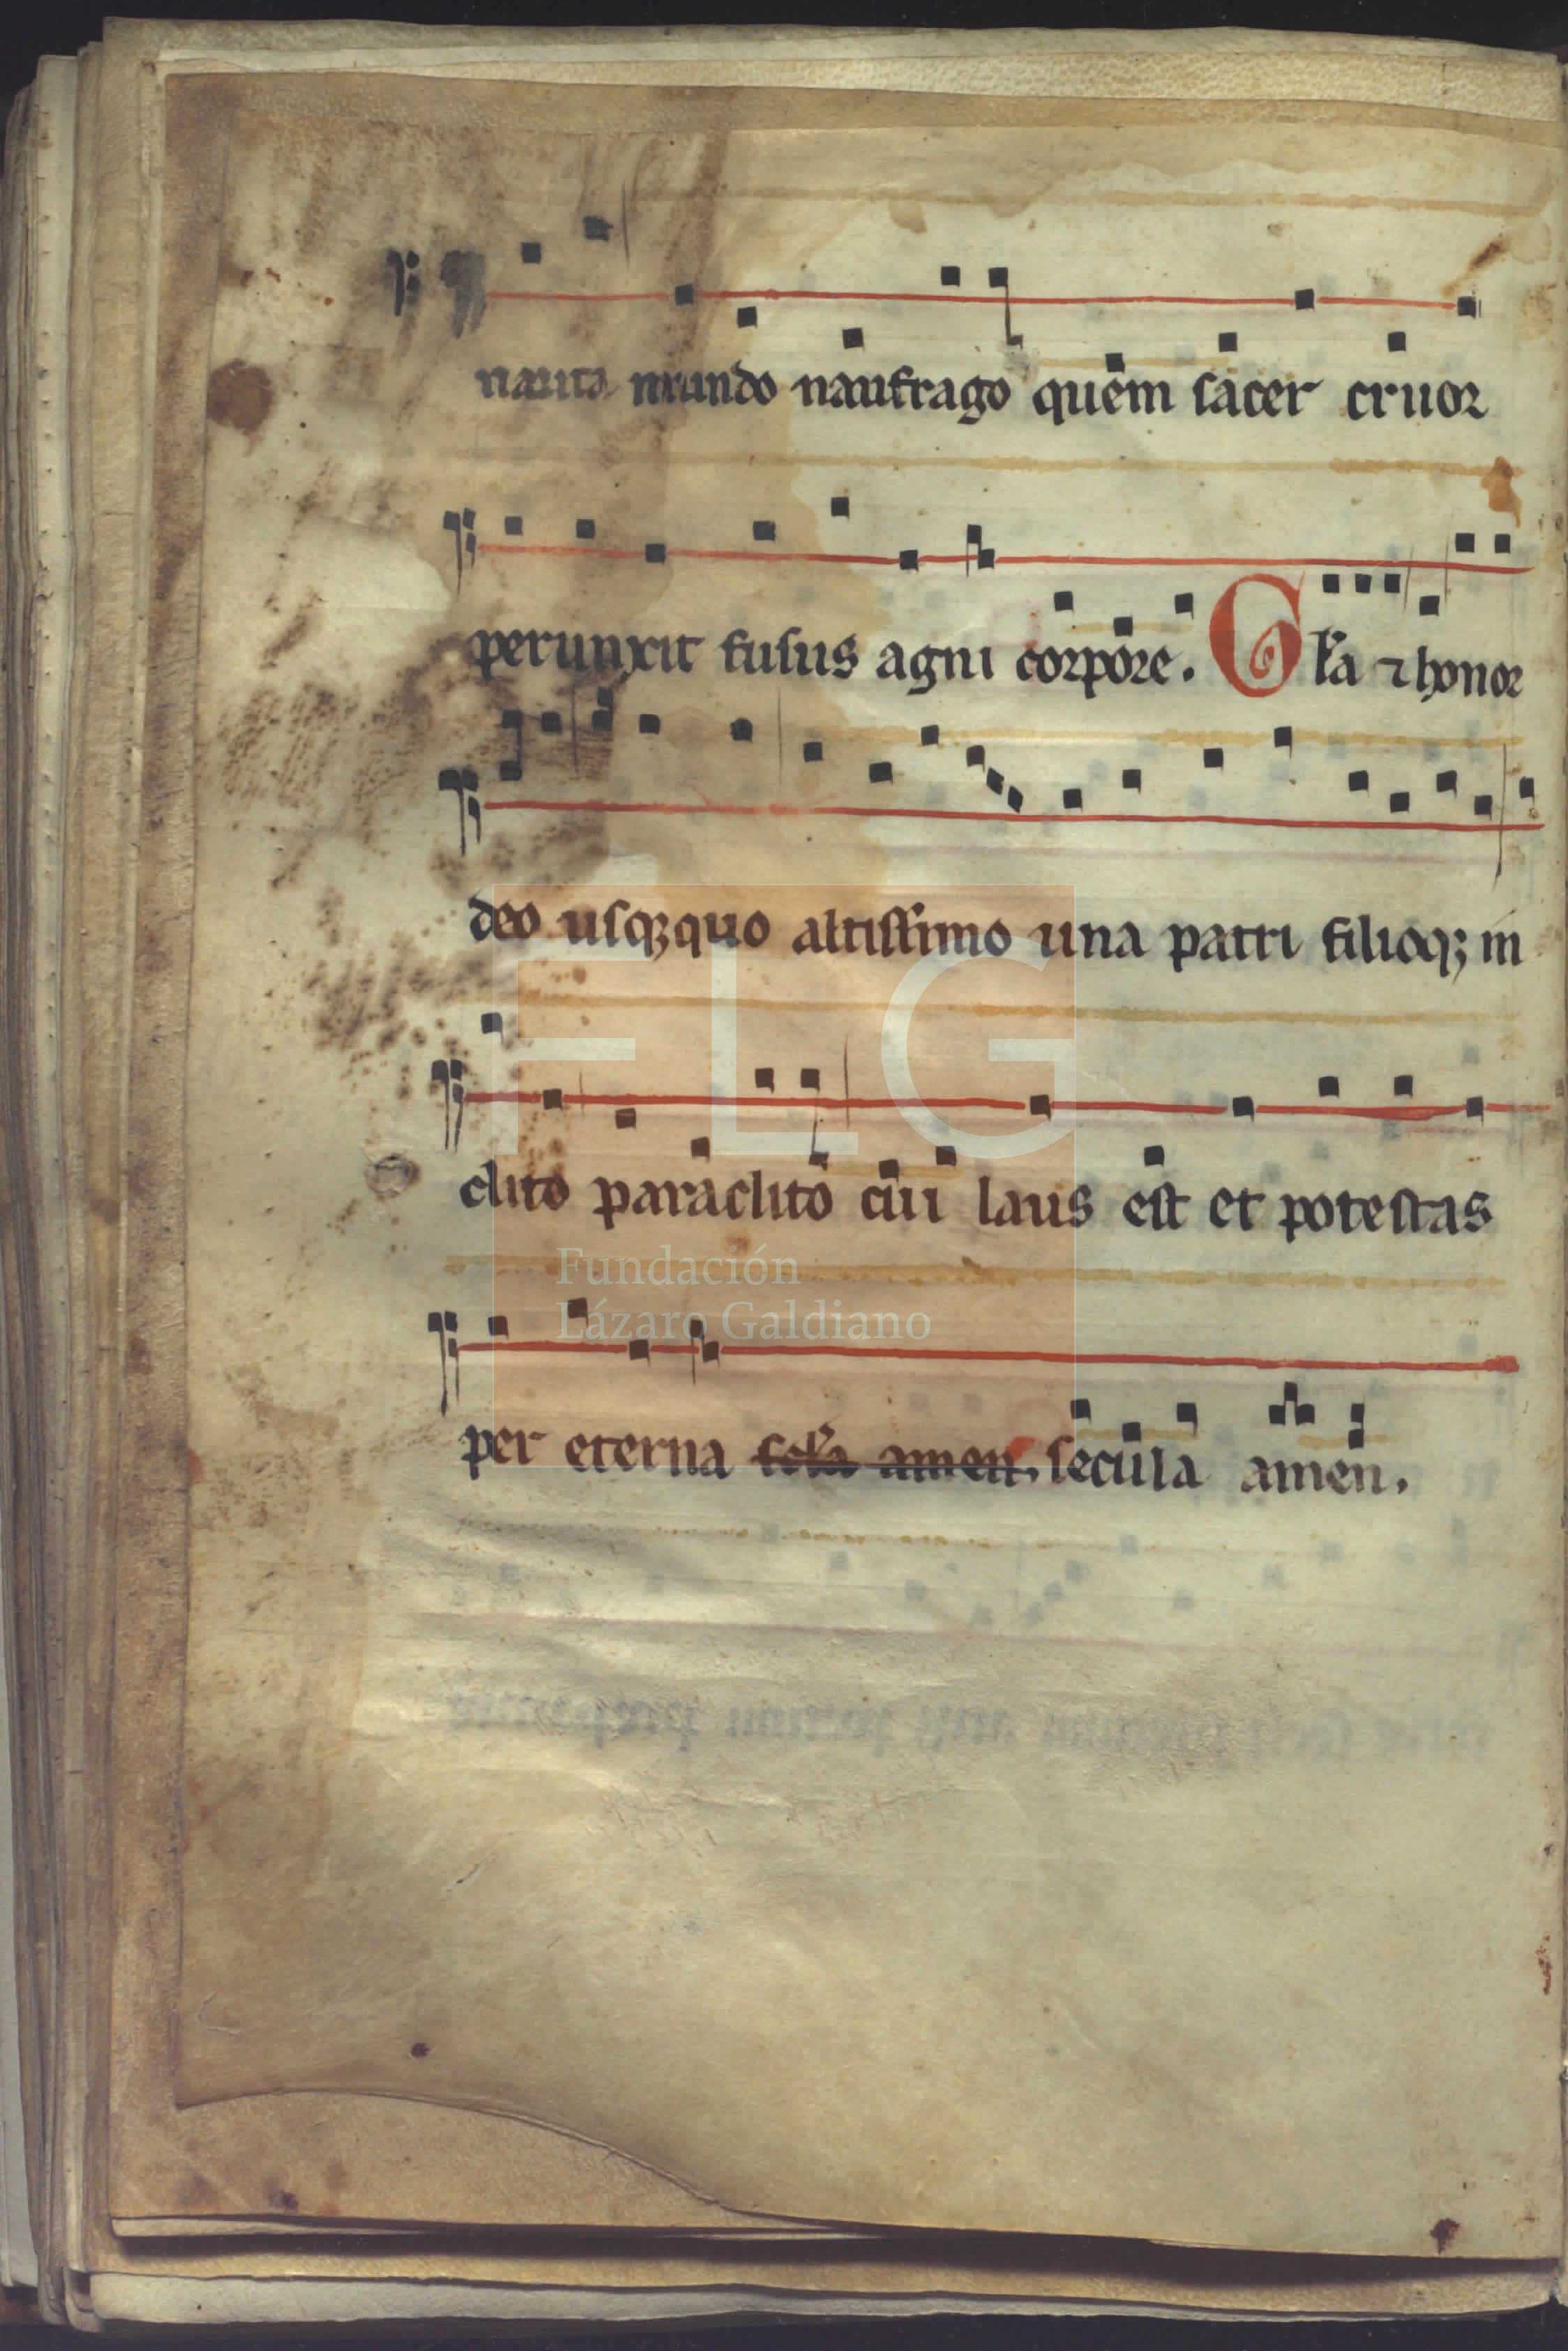 nauta mundo naufrago quem sacer cruor
perunxit fusus agni corpore. Gl'a ⁊ honor
deo usqꝫquo altissimo una patri filioqꝫ in
clito paraclito cui laus est et potestas
FLG
Fundación
Lázaro Galdiano
per eterna scl'a amen. secula amen.